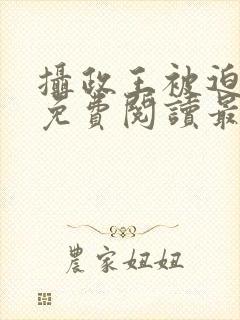 攝政王被迫
免費閱讀最
農家妞妞